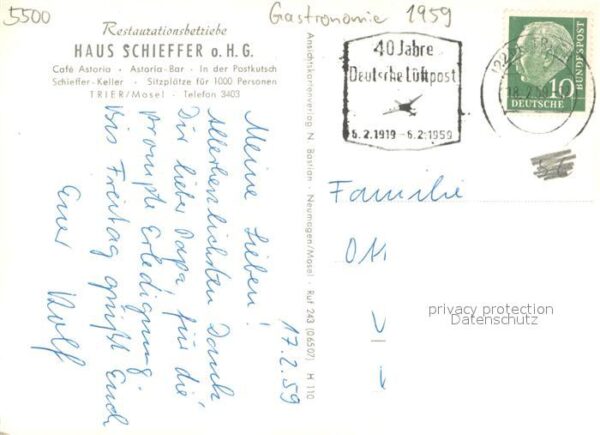 5500
Gastronomie 1959
Restaurationsbetriebe
HAUS SCHIEFFER o. H. G.
Café Astoria - Astoria-Bar - In der Postkutsch
Schieffer-Keller - Sitzplätze für 1000 Personen
TRIER/Mosel - Telefon 3403
17.2.59
Meine Lieben!
Allerherzlichsten Dank
Dir lieber Papa für die
prompte Erledigung.
Bis Freitag grüßt Euch
Euer Rolf
Ansichtskartenverlag N. Bastian - Neumagen/Mosel - Ruf 243 (06507) H 110
40 Jahre
Deutsche Luftpost
6.2.1919 - 6.2.1959
DEUTSCHE
BUNDESPOST
10
Familie
privacy protection
Datenschutz